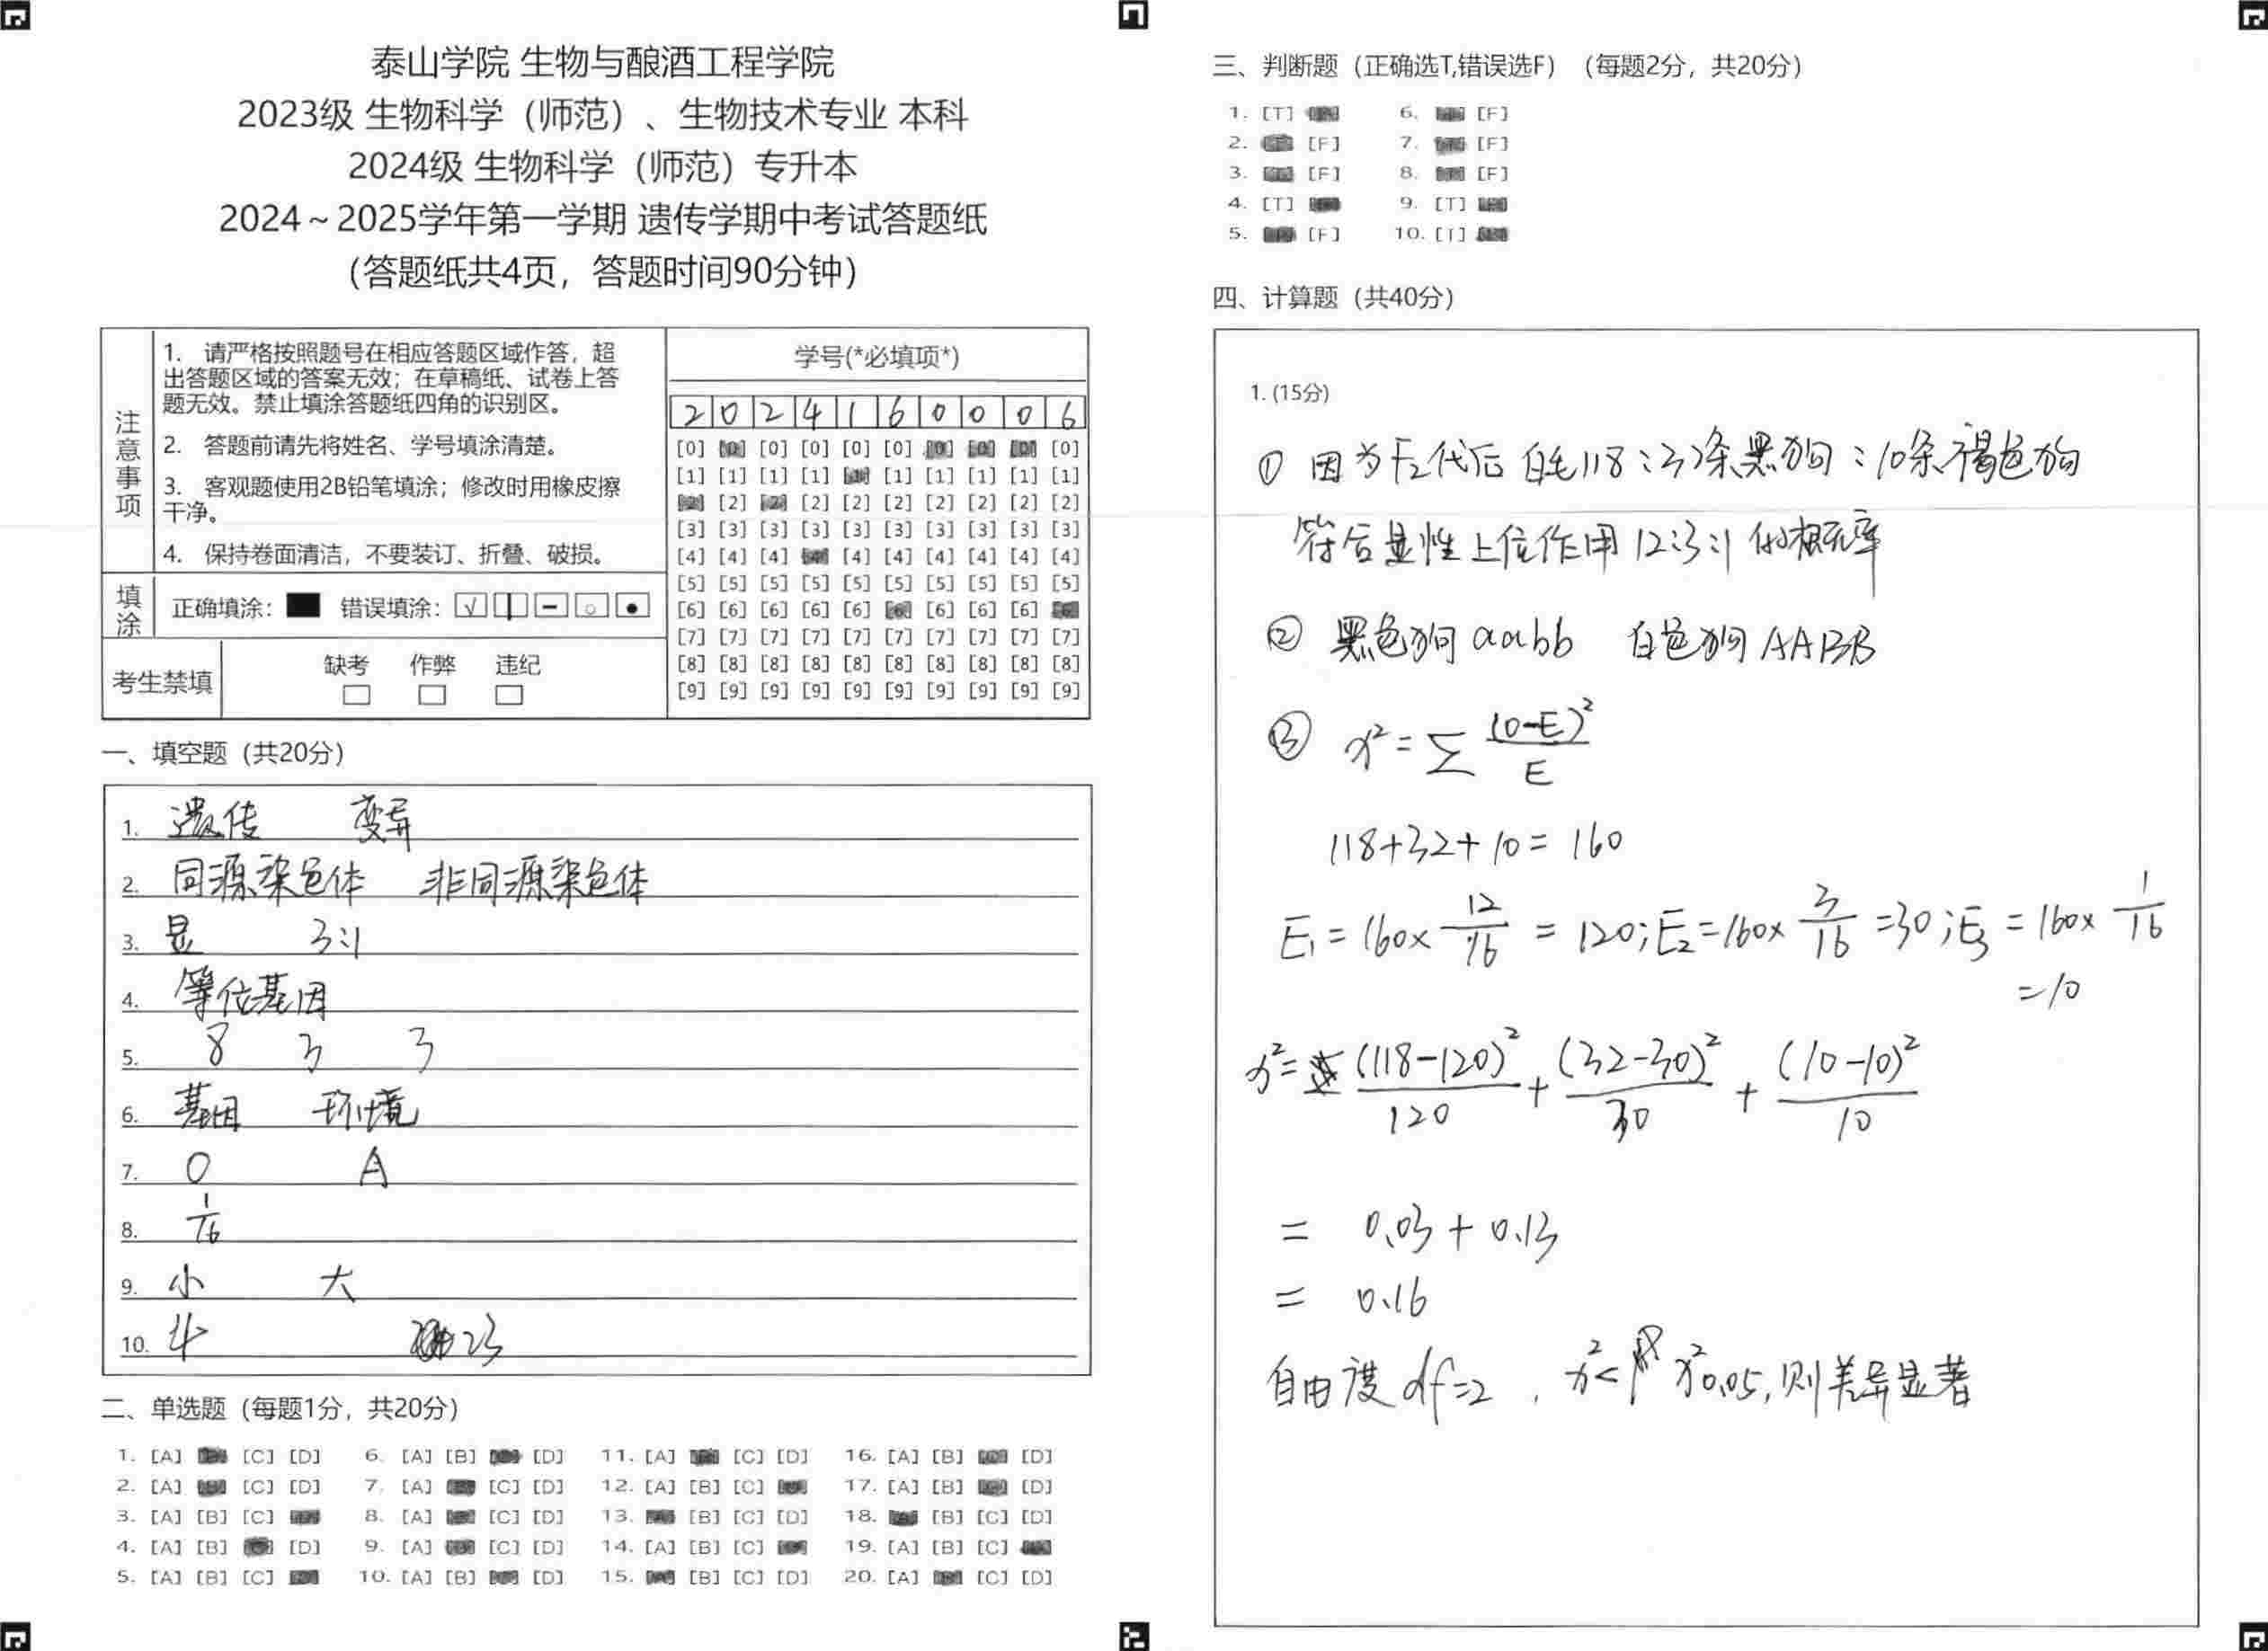 泰山学院 生物与酿酒工程学院
2023级 生物科学（师范）、生物技术专业 本科
2024级 生物科学（师范）专升本
2024～2025学年第一学期 遗传学期中考试答题纸
（答题纸共4页，答题时间90分钟）
注意事项
1. 请严格按照题号在相应答题区域作答，超
出答题区域的答案无效；在草稿纸、试卷上答
题无效。禁止填涂答题纸四角的识别区。
2. 答题前请先将姓名、学号填涂清楚。
3. 客观题使用2B铅笔填涂；修改时用橡皮擦
干净。
4. 保持卷面清洁，不要装订、折叠、破损。
填涂 正确填涂： 错误填涂：
考生禁填 缺考 作弊 违纪
学号(*必填项*)
2 0 2 4 1 6 0 0 0 6
[0] [0] [0] [0] [0] [0] [0]
[1] [1] [1] [1] [1] [1] [1] [1] [1]
[2] [2] [2] [2] [2] [2] [2] [2]
[3] [3] [3] [3] [3] [3] [3] [3] [3] [3]
[4] [4] [4] [4] [4] [4] [4] [4] [4]
[5] [5] [5] [5] [5] [5] [5] [5] [5] [5]
[6] [6] [6] [6] [6] [6] [6] [6]
[7] [7] [7] [7] [7] [7] [7] [7] [7] [7]
[8] [8] [8] [8] [8] [8] [8] [8] [8] [8]
[9] [9] [9] [9] [9] [9] [9] [9] [9] [9]
一、填空题（共20分）
1. 遗传 变异
2. 同源染色体 非同源染色体
3. 显 3:1
4. 等位基因
5. 8 3 3
6. 基因 环境
7. O A
8. 1/16
9. 小 大
10. 4 23
二、单选题（每题1分，共20分）
1. [A] [C] [D] 6. [A] [B] [D] 11. [A] [C] [D] 16. [A] [B] [D]
2. [A] [C] [D] 7. [A] [C] [D] 12. [A] [B] [C] 17. [A] [B] [D]
3. [A] [B] [C] 8. [A] [C] [D] 13. [B] [C] [D] 18. [B] [C] [D]
4. [A] [B] [D] 9. [A] [C] [D] 14. [A] [B] [C] 19. [A] [B] [C]
5. [A] [B] [C] 10. [A] [B] [D] 15. [B] [C] [D] 20. [A] [C] [D]
三、判断题（正确选T,错误选F）（每题2分，共20分）
1. [T] 6. [F]
2. [F] 7. [F]
3. [F] 8. [F]
4. [T] 9. [T]
5. [F] 10. [T]
四、计算题（共40分）
1. (15分)
① 因为F₂代后 白毛118：32条黑狗：10条褐色狗
符合显性上位作用 12:3:1 的概率
② 黑色狗 aabb 白色狗 AABB
③ x² = ∑ (O-E)²/E
118+32+10= 160
E₁ = 160× 12/16 = 120; E₂=160× 3/16 =30; E₃ = 160× 1/16
=10
x²= (118-120)²/120 + (32-30)²/30 + (10-10)²/10
= 0.03 + 0.13
= 0.16
自由度 df=2 , x²< x²0.05, 则差异显著